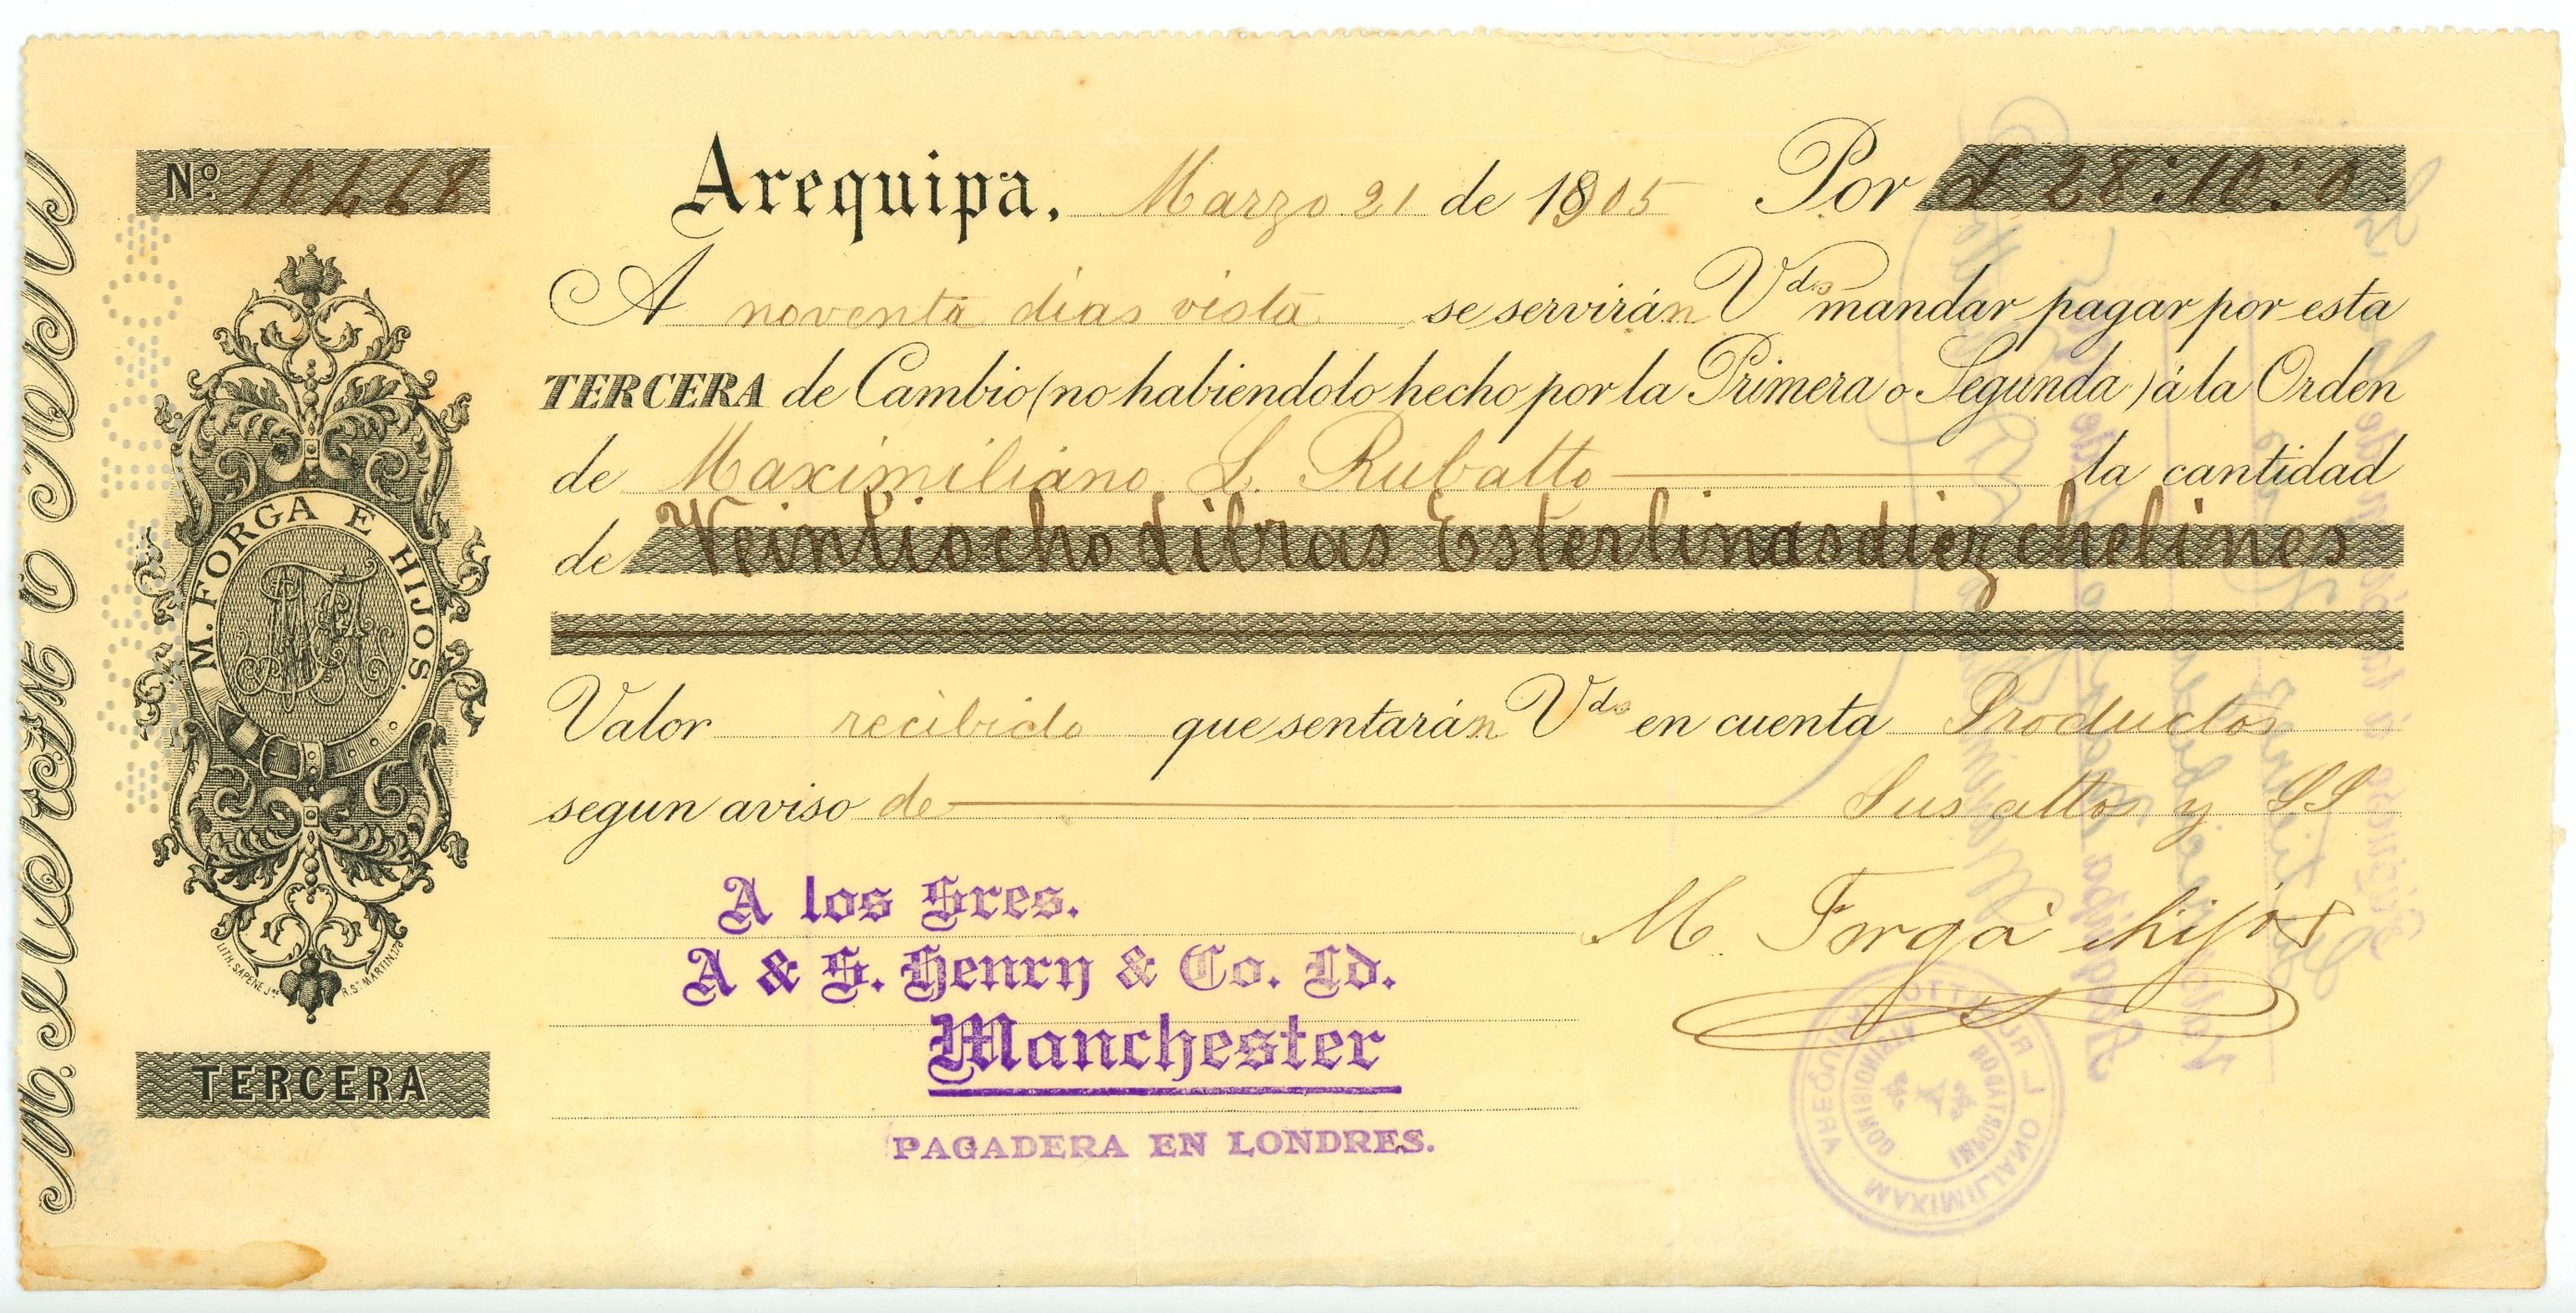 Nº 10468
Arequipa, Marzo 21 de 1905 Por £ 28:10:0
A noventa dias vista se servirán Vds mandar pagar por esta
TERCERA de Cambio (no habiendolo hecho por la Primera o Segunda) á la Orden
de Maximiliano L. Rubatto la cantidad
de Veintiocho Libras Esterlinas diez chelines
Valor recibido que sentarán Vds en cuenta Productos
segun aviso de Sus attos y SS
M. Forga é hijos
A los Sres.
A & S. Henry & Co. Ld.
Manchester
PAGADERA EN LONDRES.
M. FORGA E HIJOS.
LITH. SAPENE Jne R. St MARTIN, 178
TERCERA
MAXIMILIANO L RUBATTO AREQUIPA
IMPORTADOR
COMISIONISTA